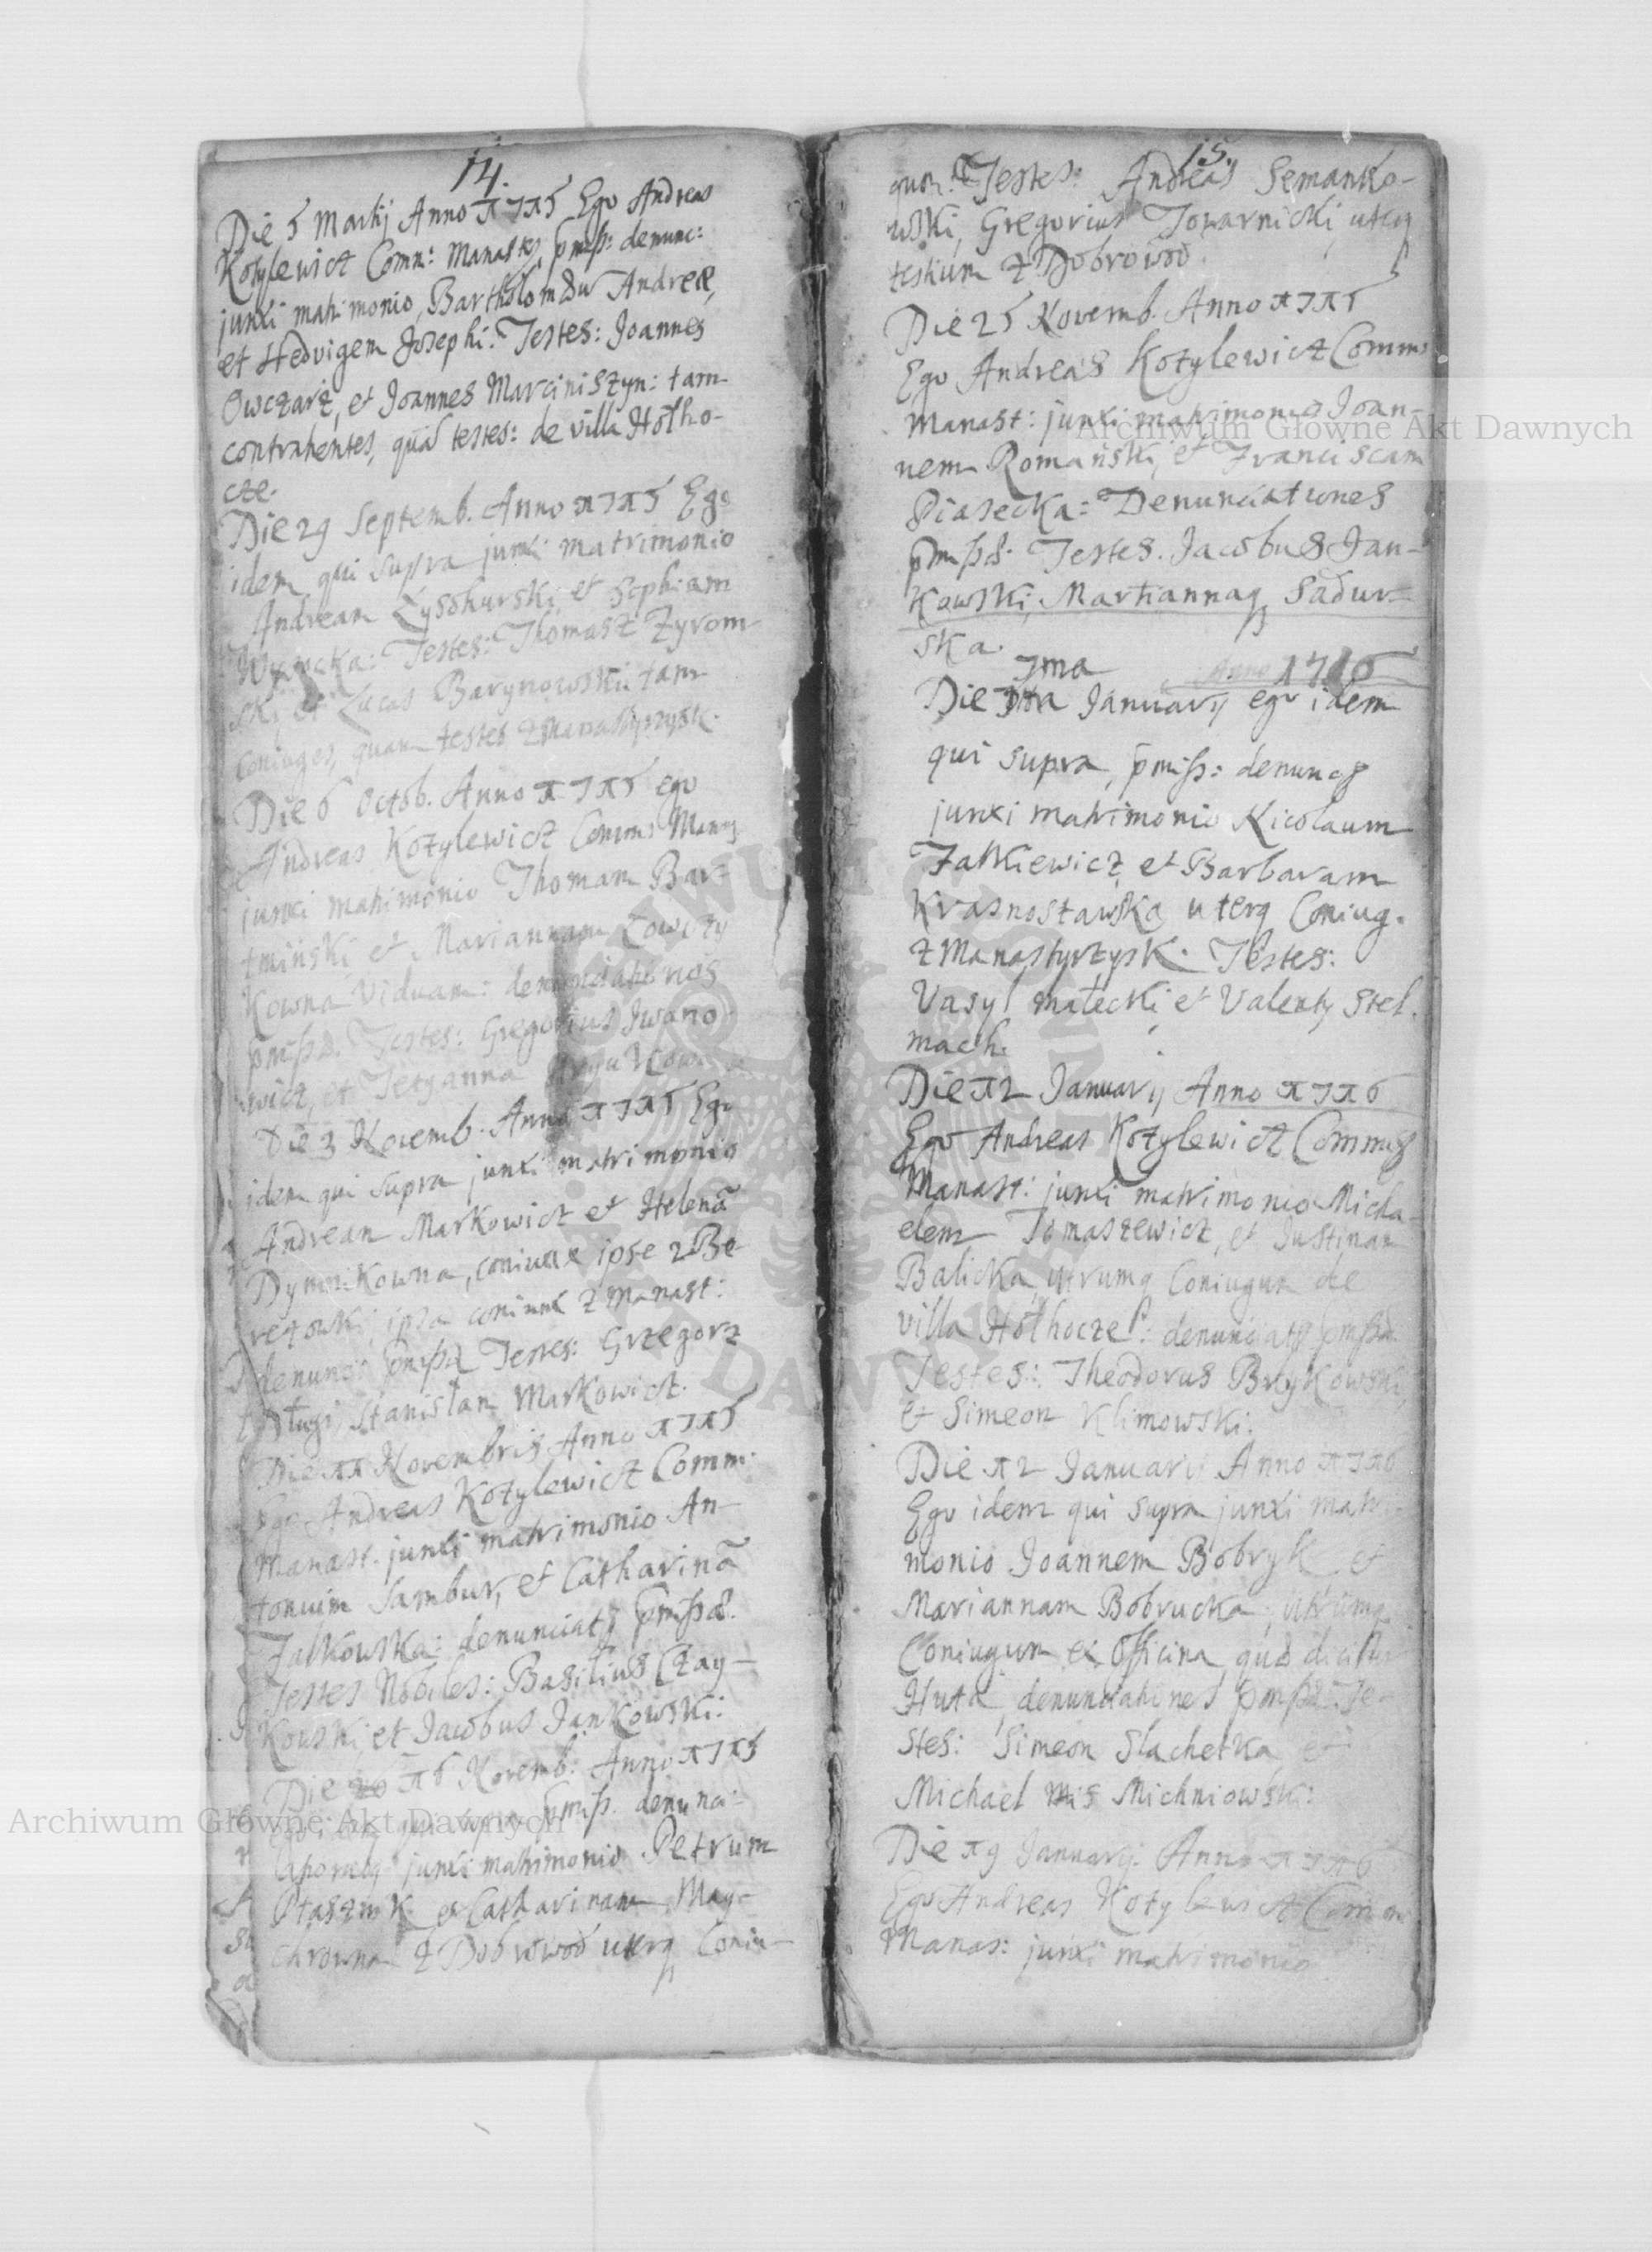 14.
Die 5 Martij Anno 1715 Ego Andreas
Kotylewicz Comm: Manast, pmiss: denunc:
junxi matrimonio, Bartholomæu Andreæ,
et Hedvigem Josephi. Testes: Joannes
Owczarz, et Joannes Marciniszyn: tam
contrahentes, quā testes: de villa Hołho-
cze.
Die 29 Septemb. Anno 1715 Ego
idem qui supra junxi matrimonio
Andream et Sophiam
Testes: Thomasz Zyrom-
ski, et Lucas Barynowski: tam
coniuges, quam testes z Manastyrzysk.
Die 6 Octob. Anno 1715 ego
Andreas Kotylewicz Comm: Manas
junxi matrimonio Thomam Bar-
tmiński et Mariannam Łowczy
Kowna Viduam: denunciationes
pmiss. Testes: Gregorius Iwano-
wicz, et Tetyanna
Die 3 Novemb. Anno 1715 Ego
idem qui supra junxi matrimonio
Andream Markowicz et Helenā
Dymnikowna, coniux ipse z Be-
rezowki, ipsa coniunx z Manast:
denunc: pmiss Testes: Grzegorz
Długi, Stanisłan Markowicz.
Die 11 Novembris Anno 1715
Ego Andreas Kotylewicz Comm:
Manast. junxi matrimonio An-
tonium Sambur, et Catharinā
Falkowska: denunciat pmiss.
Testes Nobiles: Basilius Czay-
Kowski, et Jacobus Jankowski.
Die 16 Novemb: Anno 1715
ego idem qui supra pmiss. denunci:
junxi matrimonio Petrum
Ptasznik et Catharinam May-
chrowna z Dobrowod uterq Coniu-
15.
gum. Testes: Andreas Semanko-
wski, Gregorius Towarnicki, utrq
testium z Dobrowod.
Die 25 Novemb. Anno 1715
Ego Andreas Kotylewicz Comm:
Manast: junxi matrimonio Joan-
nem Romański, et Franciscam
Piasecka: Denunciationes
pmiss. Testes. Jacobus Jan-
Kowski, Martiannaq Sadur-
ska.
Anno 1716
1ma
Die January ego idem
qui supra, pmiss: denunc
junxi matrimonio Nicolaum
Falkiewicz et Barbaram
Krasnostawska uterq Coniug.
z Manastyrzysk. Testes:
Vasyl Małecki et Valenty Stel.
mach.
Die 12 January Anno 1716
Ego Andreas Kotylewicz Comm
Manast: junxi matrimonio Micha-
elem Tomaszewicz, et Justinam
Balicka, utrumq Coniugum de
villa Hołhocze: denunciat pmiss
Testes: Theodorus Brykowski,
et Simeon Klimowski.
Die 12 January Anno 1716
Ego idem qui supra junxi matri-
monio Joannem Bobryk et
Mariannam Bobrucka, Utrumq
Coniugum ex Officina, quæ dicitur
Huta, denunciationes pmiss Te-
stes: Simeon Slachetka et
Michael Mis Michniowski:
Die 19 January. Anno 1716
Ego Andreas Kotylewicz Comm
Manas: junxi matrimonio
Archiwum Główne Akt Dawnych
Archiwum Główne Akt Dawnych